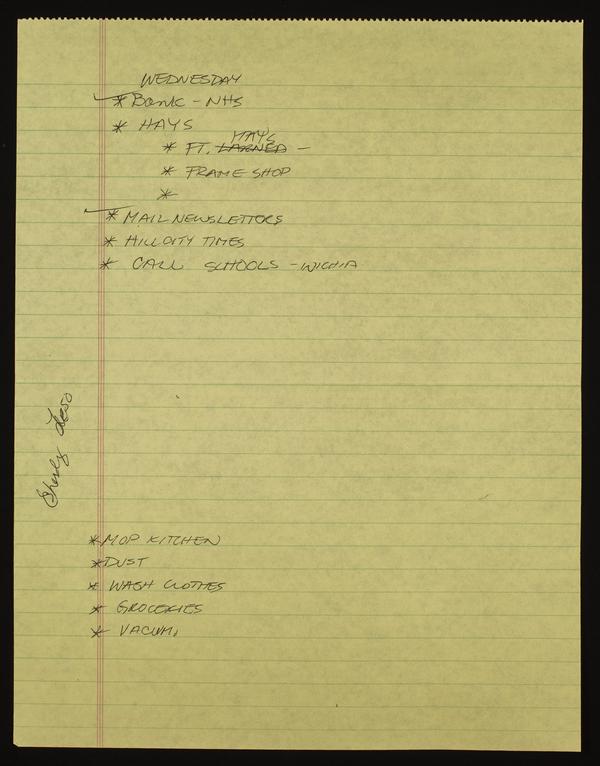 WEDNESDAY
* Bank - NHS
* HAYS
* FT. LARNED HAYS -
* FRAME SHOP
*
* MAIL NEWSLETTERS
* HILL CITY TIMES
* CALL SCHOOLS - WICHIA
* MOP KITCHEN
* DUST
* WASH CLOTHES
* GROCERIES
* VACUUM